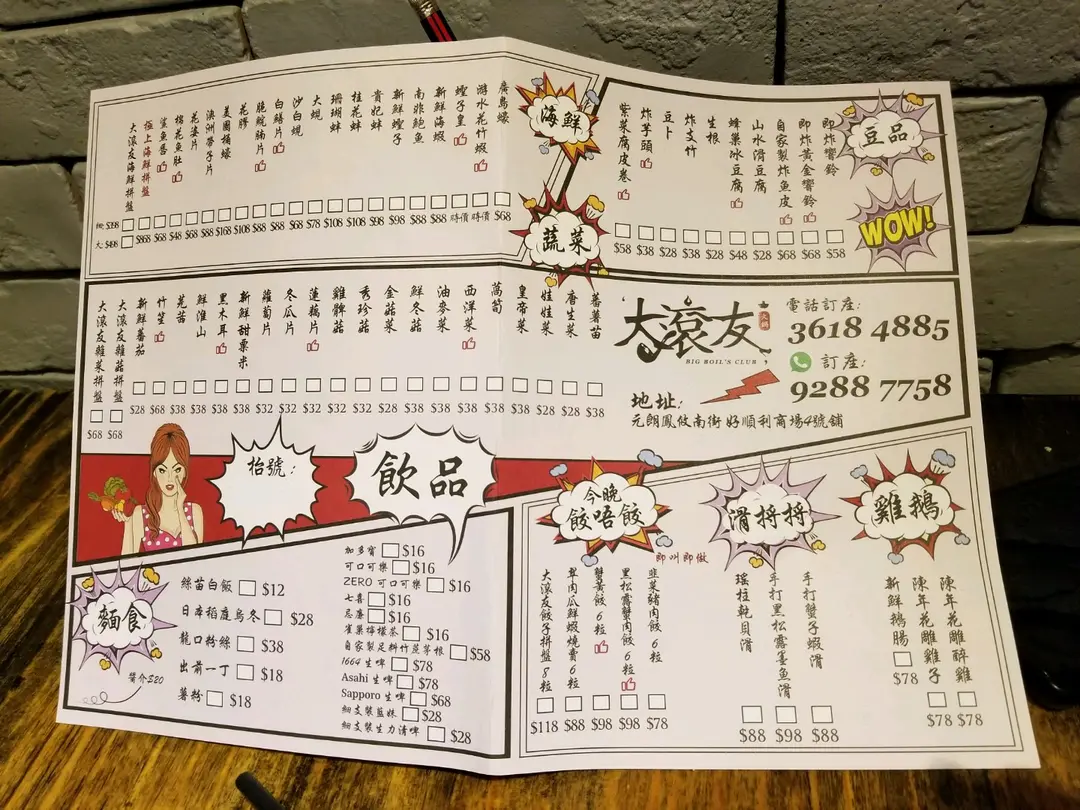 海鮮
廣島蠔 $68
游水花竹蝦 時價
蟶子皇 時價
新鮮海蝦 $88
南非鮑魚 $88
新鮮蟶子 $98
貴妃蚌 $98
桂花蚌 $108
珊瑚蚌 $108
大蜆 $78
沙白蜆 $68
白鱔片 $88
脆鯇腩片 $88
花膠 $108
美國桶蠔 $168
澳洲帶子片 $88
花婆片 $68
棉花魚肚 $48
鯊魚唇 $68
極上海鮮拼盤 $868
大滾友海鮮拼盤 $398
大: $498
豆品
WOW!
即炸響鈴 $58
即炸黃金響鈴 $68
自家製炸魚皮 $68
山水滑豆腐 $28
蜂巢冰豆腐 $48
生根 $28
炸支竹 $38
豆卜 $28
炸芋頭 $38
紫菜腐皮卷 $58
蔬菜
蕃薯苗 $38
唐生菜 $28
娃娃菜 $28
皇帝菜 $38
萵筍 $38
西洋菜 $38
油麥菜 $38
鮮冬菇 $38
金菇菜 $28
秀珍菇 $32
雞髀菇 $32
蓮藕片 $32
冬瓜片 $32
蘿蔔片 $32
新鮮甜粟米 $38
黑木耳 $38
鮮淮山 $38
芫茜 $38
竹笙 $68
新鮮蕃茄 $28
大滾友雜菇拼盤 $68
大滾友雜菜拼盤 $68
大滾友
火鍋
BIG BOIL'S CLUB
電話訂座:
3618 4885
訂座:
9288 7758
地址:
元朗鳳攸南街好順利商場4號舖
枱號:
飲品
加多寶 $16
可口可樂 $16
ZERO 可口可樂 $16
七喜 $16
忌廉 $16
雀巢檸檬茶 $16
自家製足料竹蔗茅根 $58
1664 生啤 $78
Asahi 生啤 $78
Sapporo 生啤 $68
細支裝藍妹 $28
細支裝生力清啤 $28
麵食
醬介$20
絲苗白飯 $12
日本稻庭烏冬 $28
龍口粉絲 $38
出前一丁 $18
薯粉 $18
今晚
餃唔餃
即叫即做
韭菜豬肉餃6粒 $78
黑松露蟹肉餃6粒 $98
蟹黃餃6粒 $98
羊肉瓜鮮蝦燒賣6粒 $88
大滾友餃子拼盤8粒 $118
滑捋捋
手打蟹子蝦滑 $88
手打黑松露墨魚滑 $98
瑤柱乾貝滑 $88
雞鵝
陳年花雕醉雞 $78
陳年花雕雞子 $78
新鮮鵝腸 $78